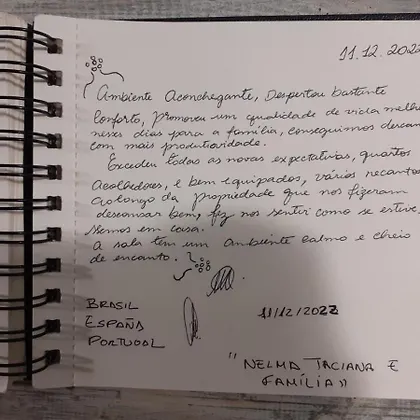 11.12.2022
Ambiente Aconchegante, Despertou bastante
Conforto, Promoveu um qualidade de vida melh
neses dias para a família, conseguimos descan
com mais produtividade.
Excedeu todas as nossas expectativas, quartos
Acolhedores, e bem equipados, vários recantos
ao longo da propriedade que nos fizeram
descansar bem, fez nos sentir como se estive
ssemos em casa.
A sala tem um ambiente calmo e cheio
de encanto.
BRASIL
ESPAÑA
PORTUGAL
11/12/2022
"NELMA TACIANA E
FAMÍLIA"